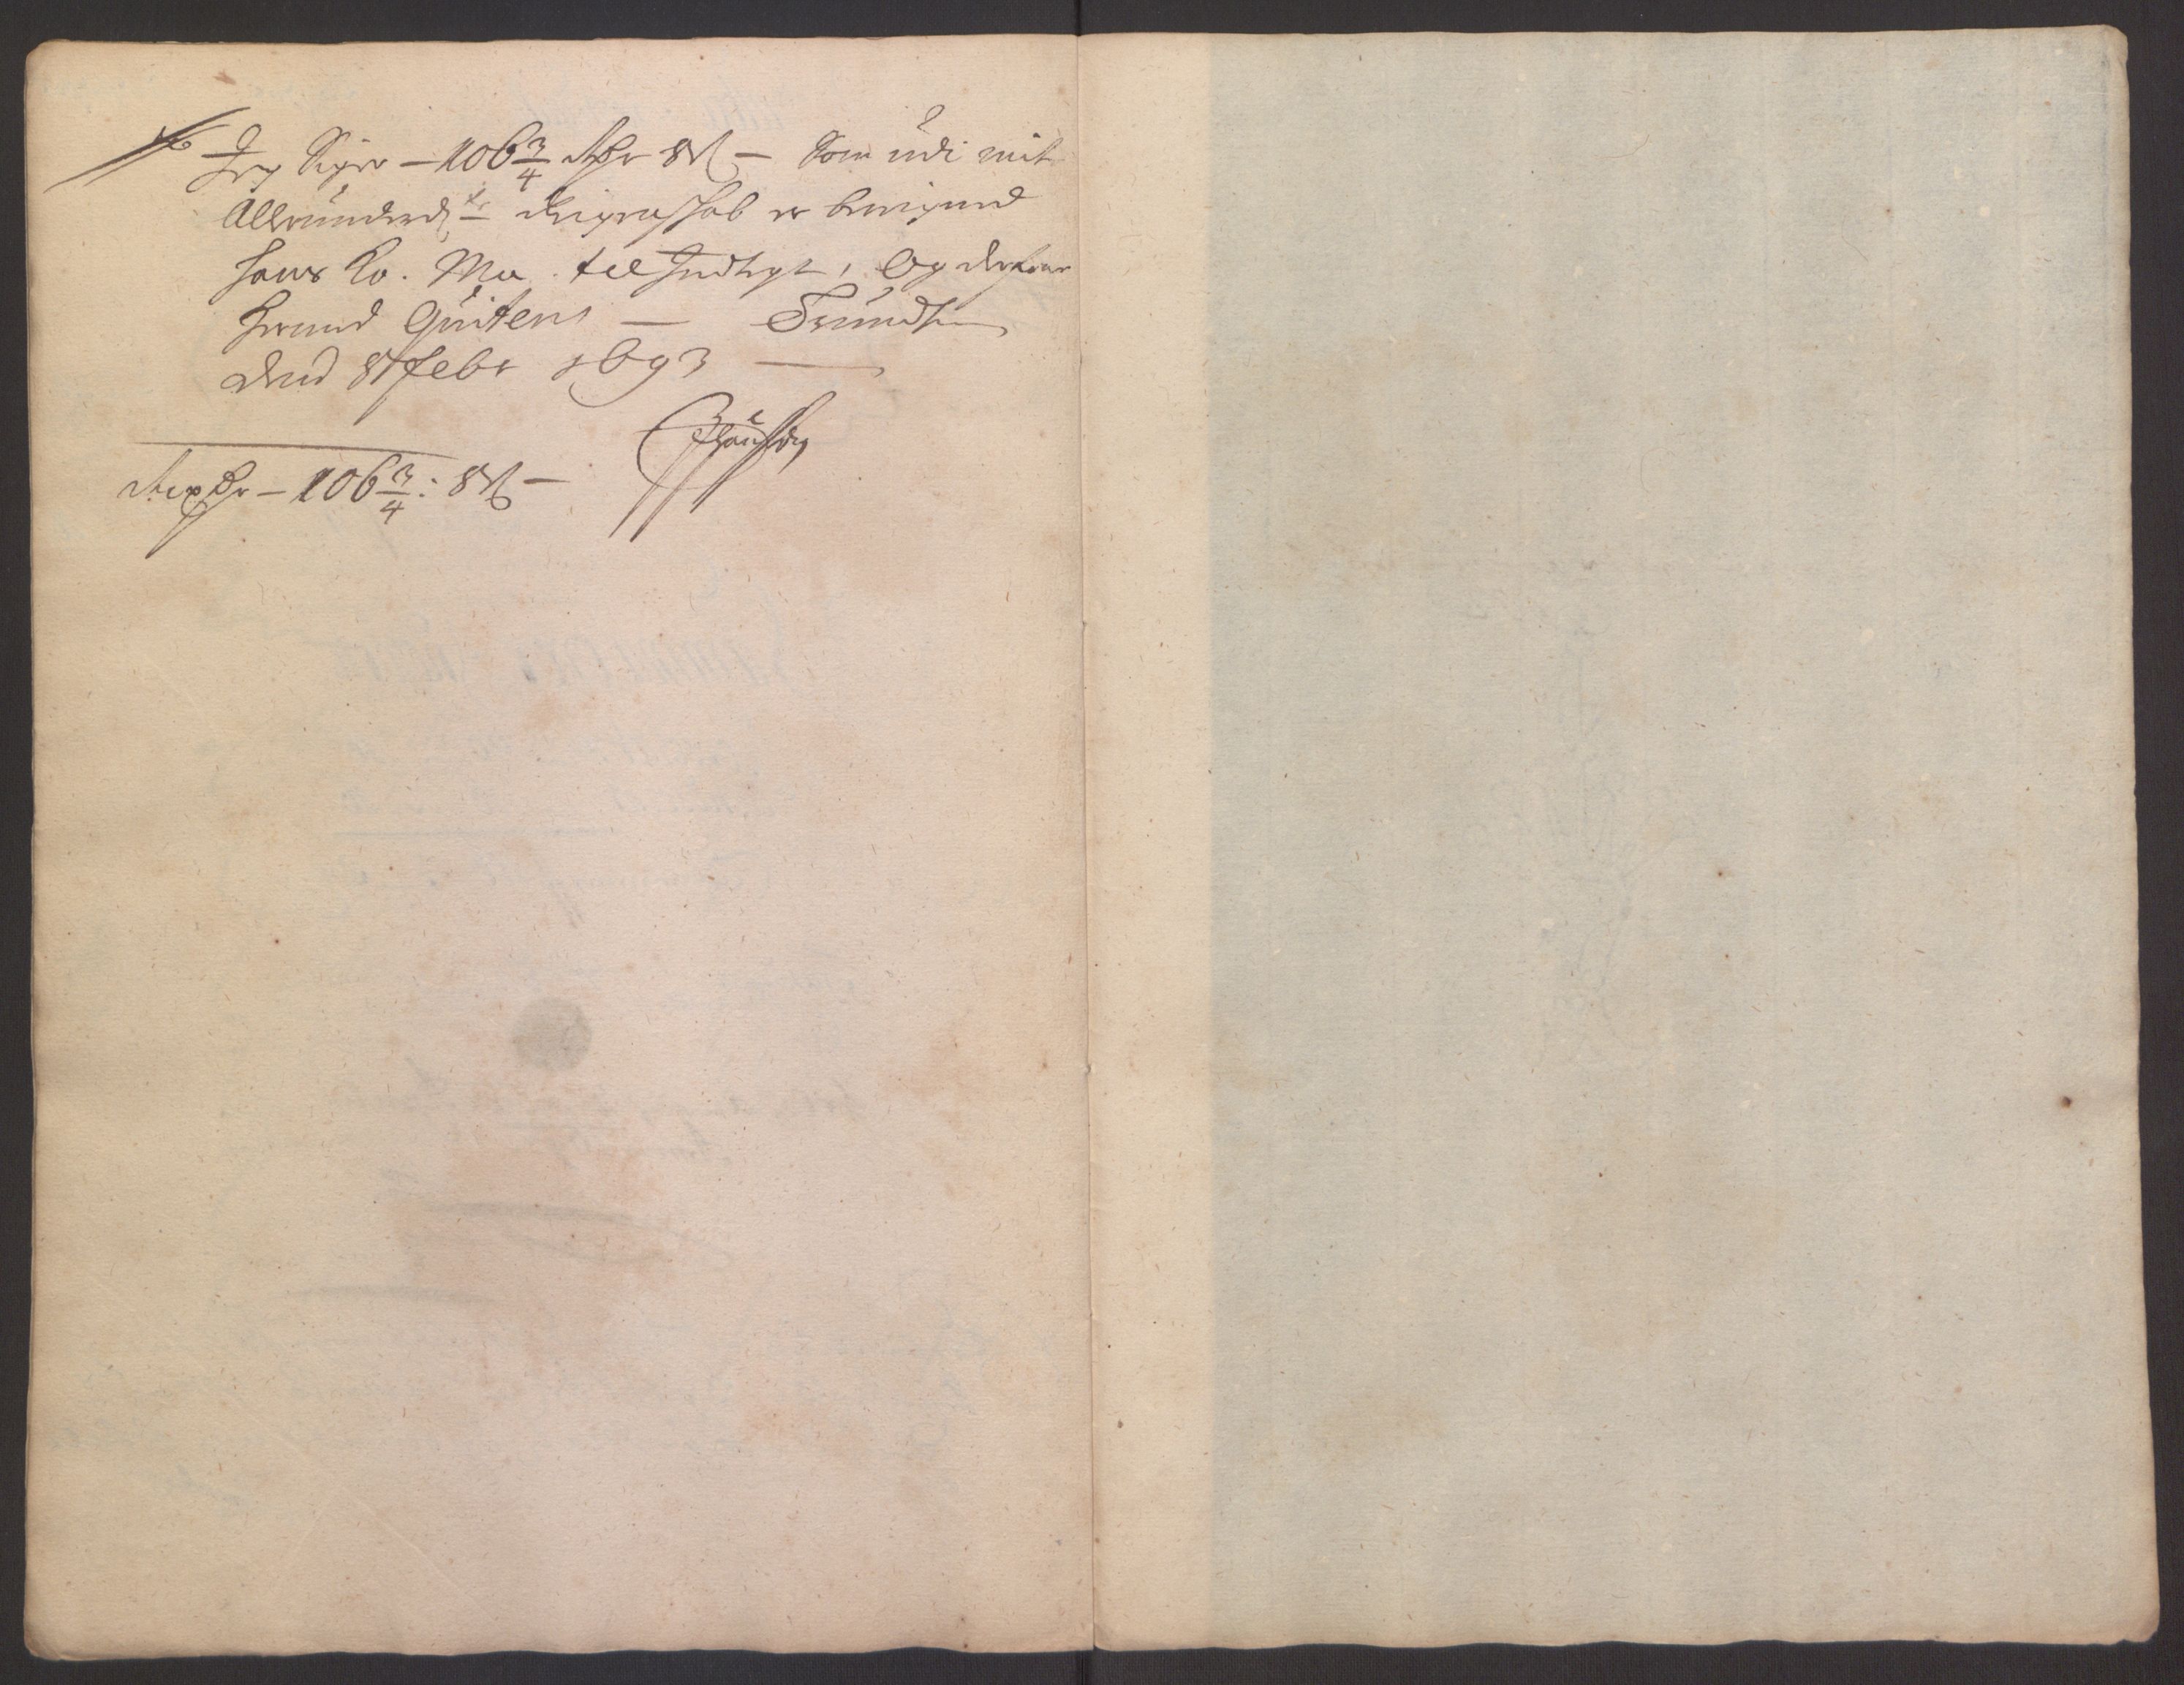 Jeg Siger – 106 3/4 Rdr 8 ß – Som udi mit
Allerunderd: Regenschab er bereigned
hans Ko. Ma. til Indtegt, Og derfore
herved Qviteris –
dend 8 Febr 1693 –
Rixdr – 106 3/4 : 8 ß –